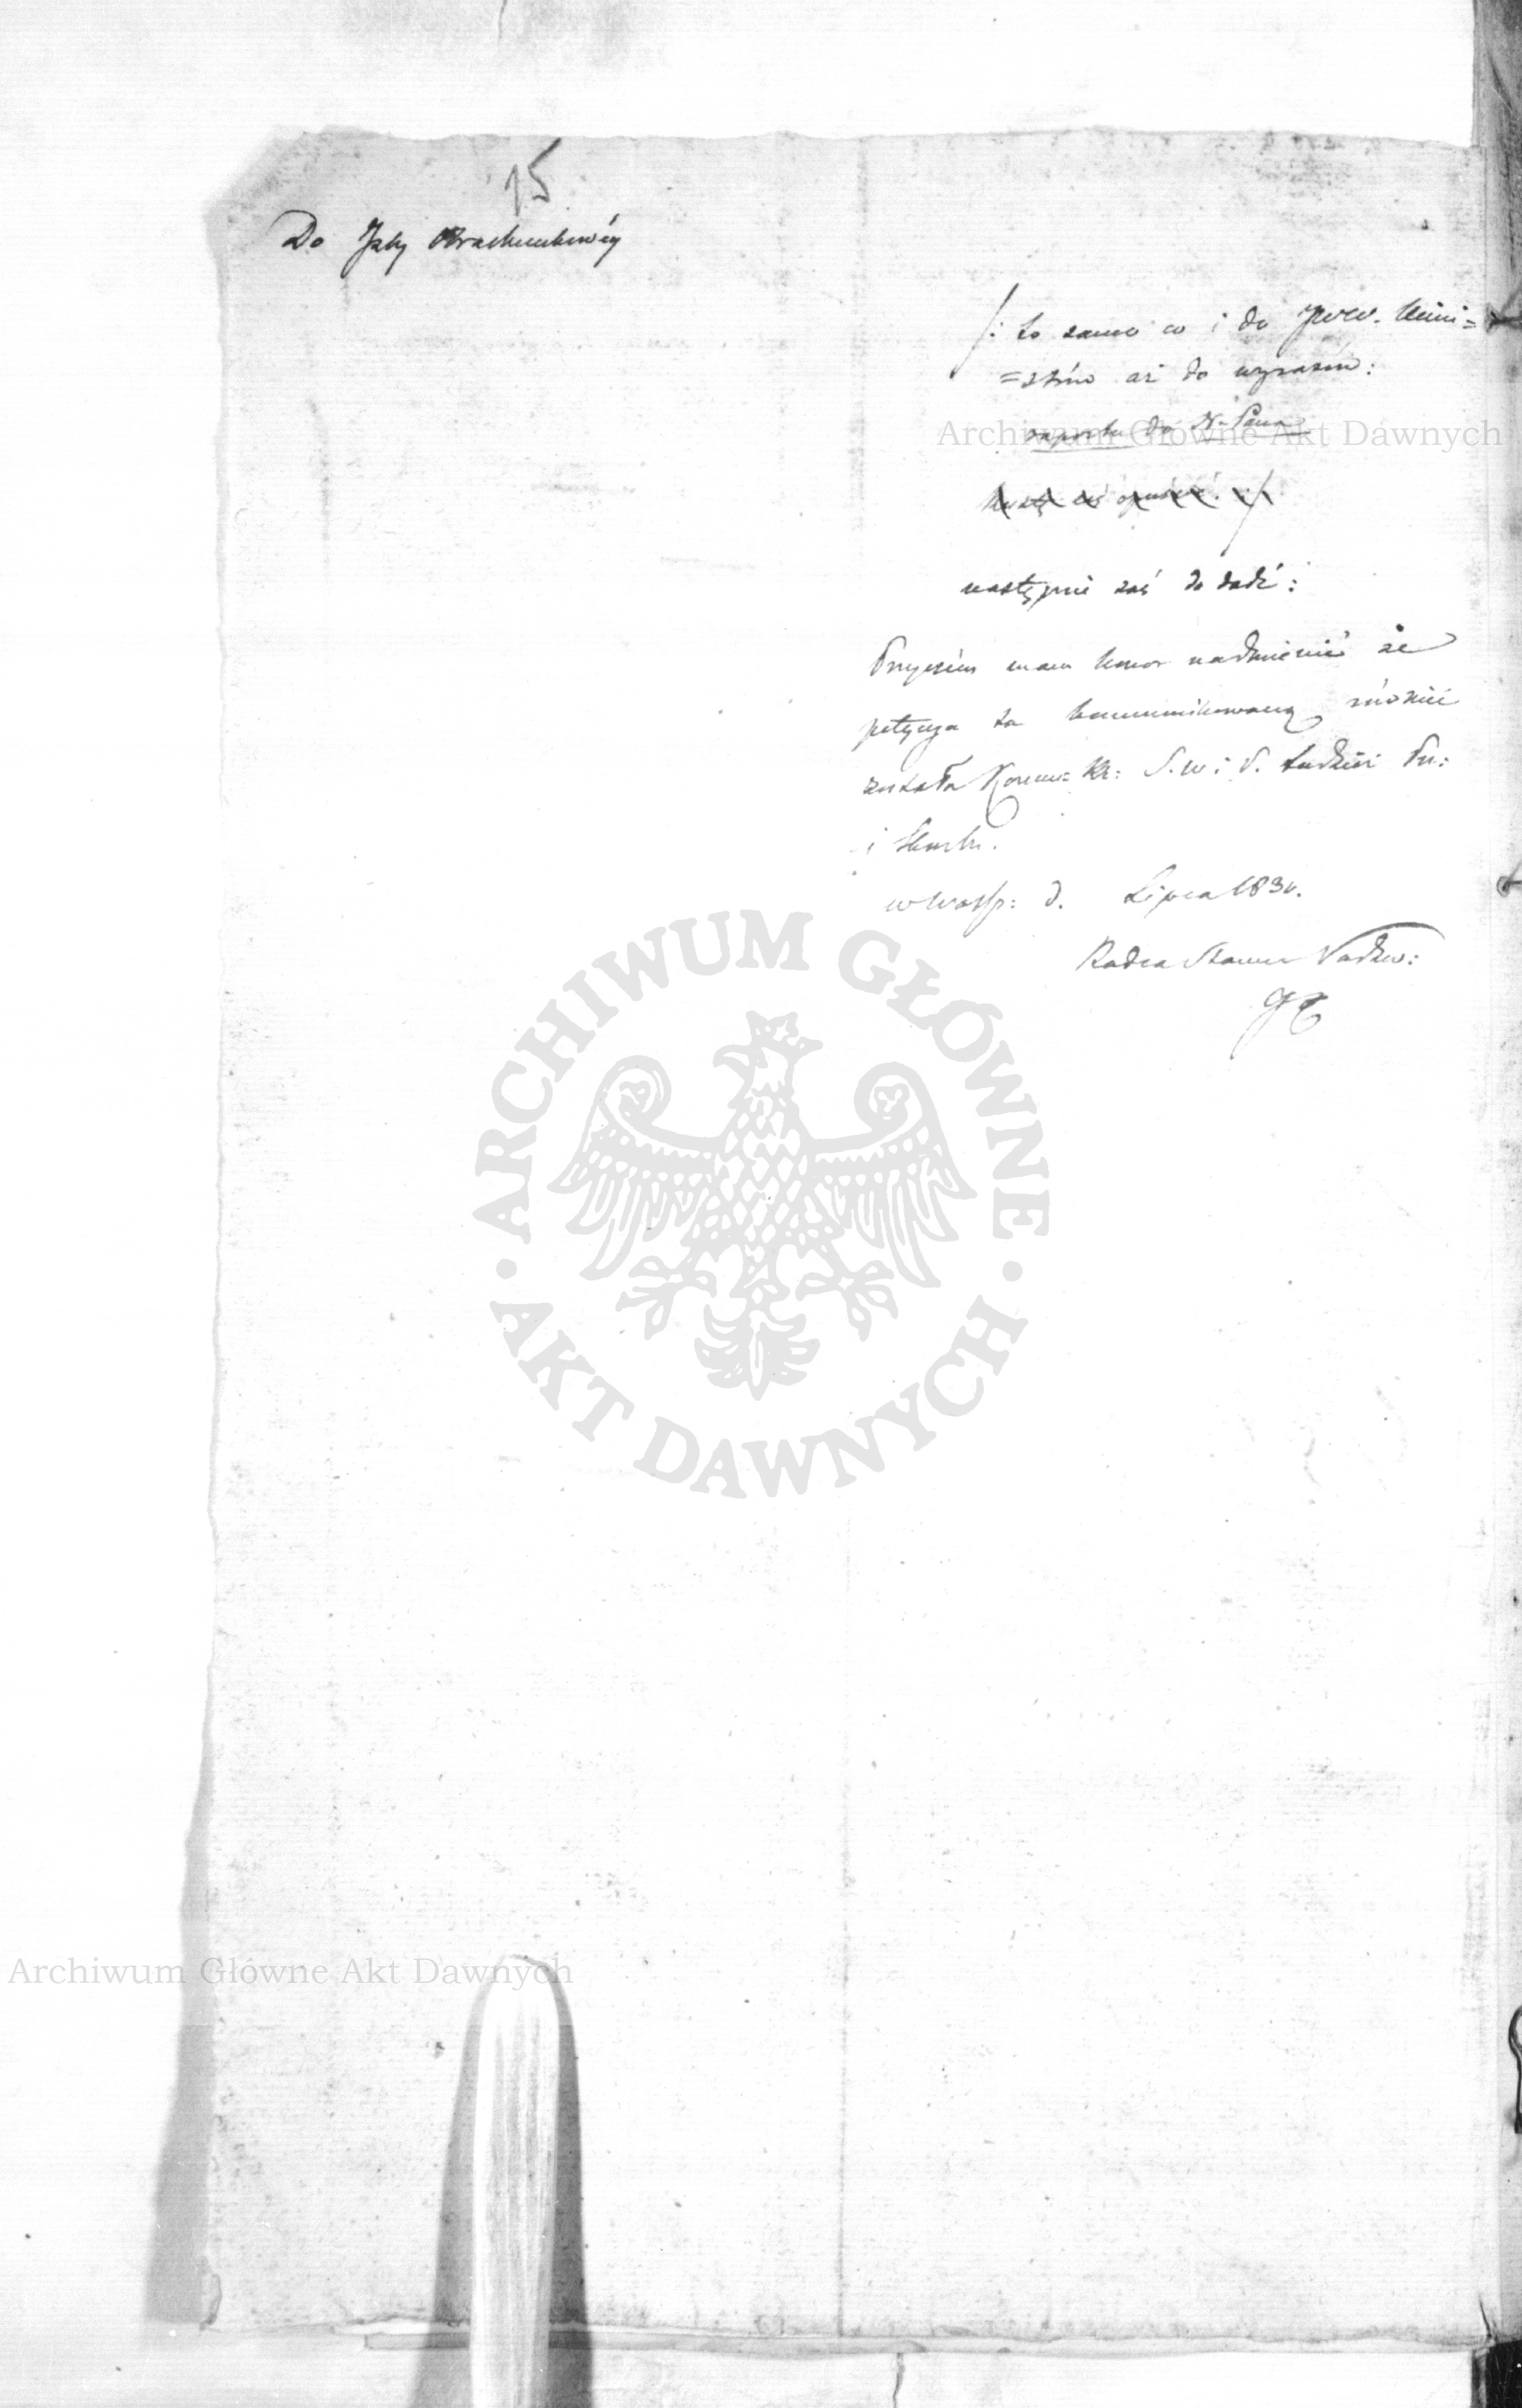 15
Do Izby Obrachunkowéy
/: to samo co i do JWW. Mini=
=strów aż do wyrazów:
raportu do N. Pana
następnie zaś dodać:
Przyczém mam honor nadmienić że
petycya ta kommunikowaną również
została Komm: R: S. W. i P. tudzież Pr:
i Skarbu.
w Warsz: d. Lipca 1830.
Radca Stanu
Archiwum Główne Akt Dawnych
ARCHIWUM GŁÓWNE · AKT DAWNYCH ·
Archiwum Główne Akt Dawnych